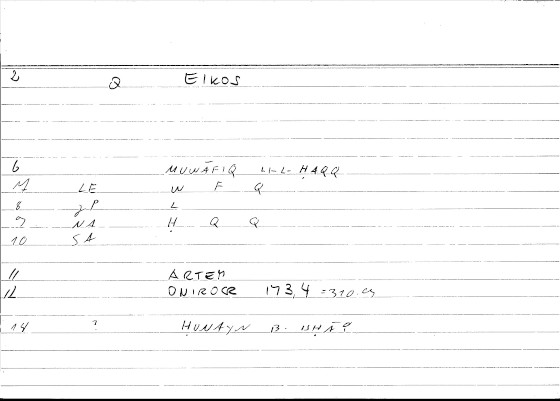 2 Q EIKOS
6 MUWĀFIQ LI-L-ḤAQQ
LE W F Q
8 JP L
9 NA Ḥ Q Q
10 SA
11 ARTEM
12 ONIROCR 173,4 =310.
14 ? ḤUNAYN B.